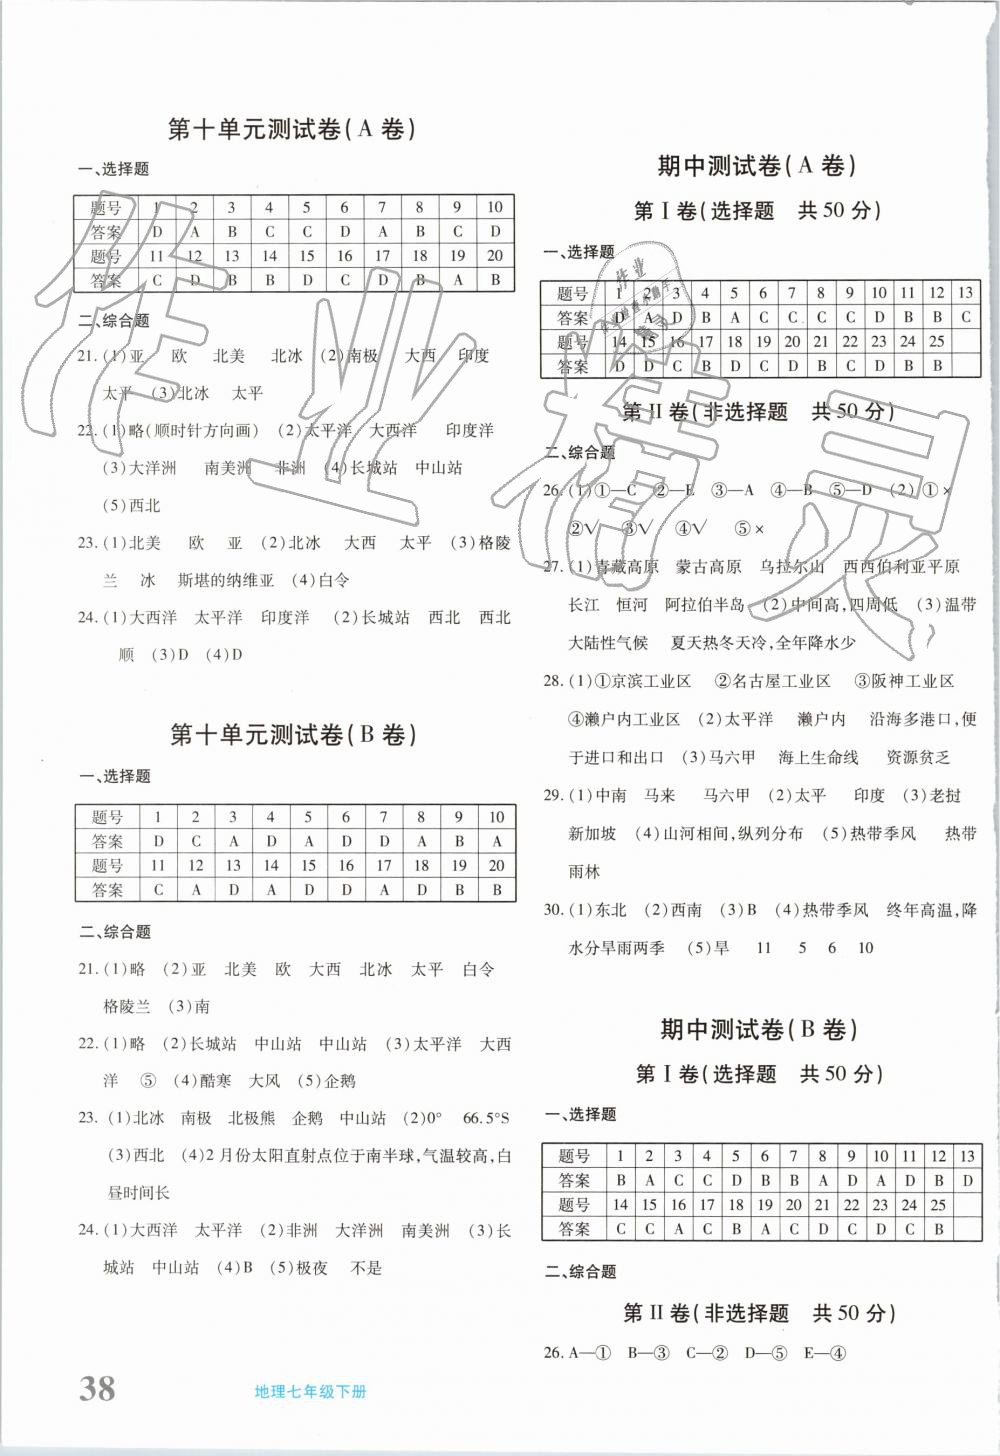 第十单元测试卷(A 卷)
一、选择题
题号 1 2 3 4 5 6 7 8 9 10
答案 D A B C C D A B C D
题号 11 12 13 14 15 16 17 18 19 20
答案 C D B B D C D B A B
二、综合题
21. (1)亚 欧 北美 北冰 (2)南极 大西 印度
太平 (3)北冰 太平
22. (1)略(顺时针方向画) (2)太平洋 大西洋 印度洋
(3)大洋洲 南美洲 非洲 (4)长城站 中山站
(5)西北
23. (1)北美 欧 亚 (2)北冰 大西 太平 (3)格陵
兰 冰 斯堪的纳维亚 (4)白令
24. (1)大西洋 太平洋 印度洋 (2)长城站 西北 西北
顺 (3)D (4)D
第十单元测试卷(B 卷)
一、选择题
题号 1 2 3 4 5 6 7 8 9 10
答案 D C A D A D D A B A
题号 11 12 13 14 15 16 17 18 19 20
答案 C A D A D D A D B B
二、综合题
21. (1)略 (2)亚 北美 欧 大西 北冰 太平 白令
格陵兰 (3)南
22. (1)略 (2)长城站 中山站 中山站 (3)太平洋 大西
洋 ⑤ (4)酷寒 大风 (5)企鹅
23. (1)北冰 南极 北极熊 企鹅 中山站 (2)0° 66.5°S
(3)西北 (4)2 月份太阳直射点位于南半球,气温较高,白
昼时间长
24. (1)大西洋 太平洋 (2)非洲 大洋洲 南美洲 (3)长
城站 中山站 (4)B (5)极夜 不是
38 地理七年级下册
期中测试卷(A 卷)
第 I 卷(选择题 共 50 分)
一、选择题
题号 1 2 3 4 5 6 7 8 9 10 11 12 13
答案 D A D B A C C C C D B B C
题号 14 15 16 17 18 19 20 21 22 23 24 25
答案 D D C B D C B D C D B B
第 II 卷(非选择题 共 50 分)
二、综合题
26. (1)①—C ②—E ③—A ④—B ⑤—D (2)①×
②√ ③√ ④√ ⑤×
27. (1)青藏高原 蒙古高原 乌拉尔山 西西伯利亚平原
长江 恒河 阿拉伯半岛 (2)中间高,四周低 (3)温带
大陆性气候 夏天热冬天冷,全年降水少
28. (1)①京滨工业区 ②名古屋工业区 ③阪神工业区
④濑户内工业区 (2)太平洋 濑户内 沿海多港口,便
于进口和出口 (3)马六甲 海上生命线 资源贫乏
29. (1)中南 马来 马六甲 (2)太平 印度 (3)老挝
新加坡 (4)山河相间,纵列分布 (5)热带季风 热带
雨林
30. (1)东北 (2)西南 (3)B (4)热带季风 终年高温,降
水分旱雨两季 (5)旱 11 5 6 10
期中测试卷(B 卷)
第 I 卷(选择题 共 50 分)
一、选择题
题号 1 2 3 4 5 6 7 8 9 10 11 12 13
答案 B A C C D B B A D A D B D
题号 14 15 16 17 18 19 20 21 22 23 24 25
答案 C C A C B A C D C D C B
二、综合题
第 II 卷(非选择题 共 50 分)
26. A—① B—③ C—② D—⑤ E—④
作业精灵